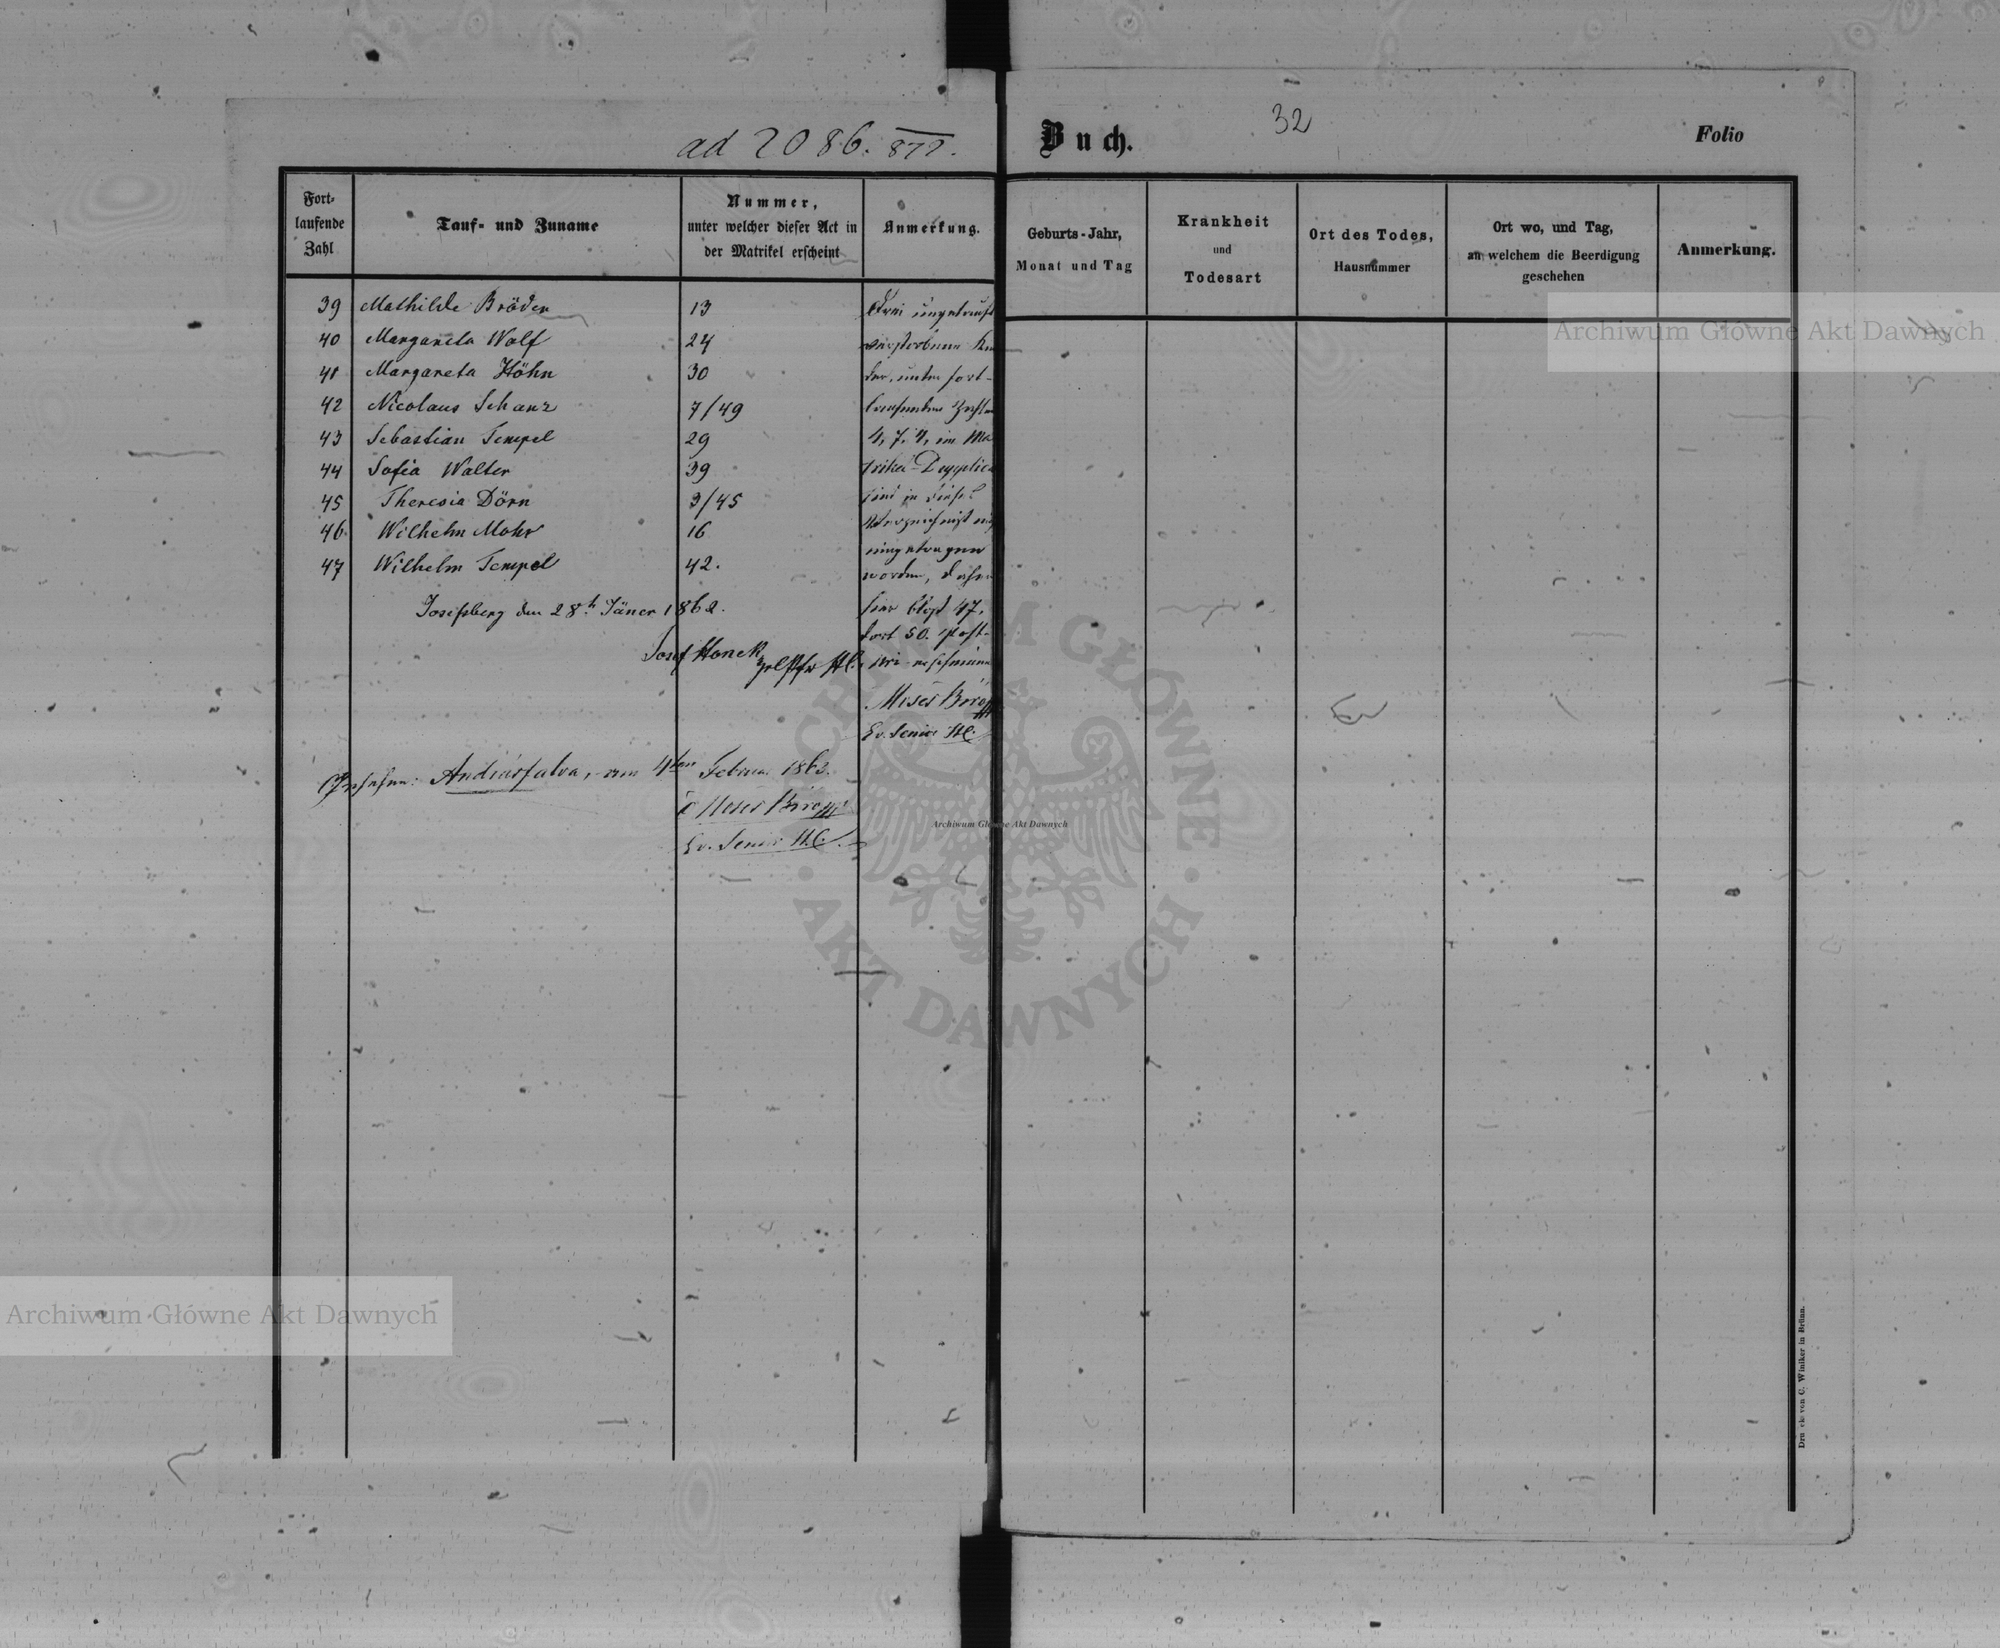 ad 2086. 877.
Fort-
laufende
Zahl
Tauf- und Zuname
Nummer,
unter welcher dieser Act in
der Matrikel erscheint
Anmerkung.
39 Mathilde Bröder 13
40 Margareta Wolf 24
41 Margareta Höhn 30
42 Nicolaus Schanz 7/49
43 Sebastian Tempel 29
44 Sofia Walter 39
45 Theresia Dörn 3/45
46. Wilhelm Mohr 16
47 Wilhelm Tempel 42.
Drei ungetauft
verstorbene Kin
der, unter fort-
laufenden Zahlen
4, 7, 9, im Ma
trikel-Duplica
sind in dieses
Verzeichnist
eingetragen
worden, daher
hier blos 47,
dort 50. Post-
Moses Biro
Ev. Senior HC.
Josefsberg den 28t Jäner 1862.
Josef Honek
Gesehen: Andrásfalva, am 4ten Februar 1863.
Moses Biro
Ev. Senior H.C.
Buch.
32
Folio
Geburts-Jahr,
Monat und Tag
Krankheit
und
Todesart
Ort des Todes,
Hausnummer
Ort wo, und Tag,
an welchem die Beerdigung
geschehen
Anmerkung.
Archiwum Główne Akt Dawnych
Archiwum Główne Akt Dawnych
ARCHIWUM GŁÓWNE
AKT DAWNYCH
Archiwum Główne Akt Dawnych
Druck von C. Winiker in Brünn.